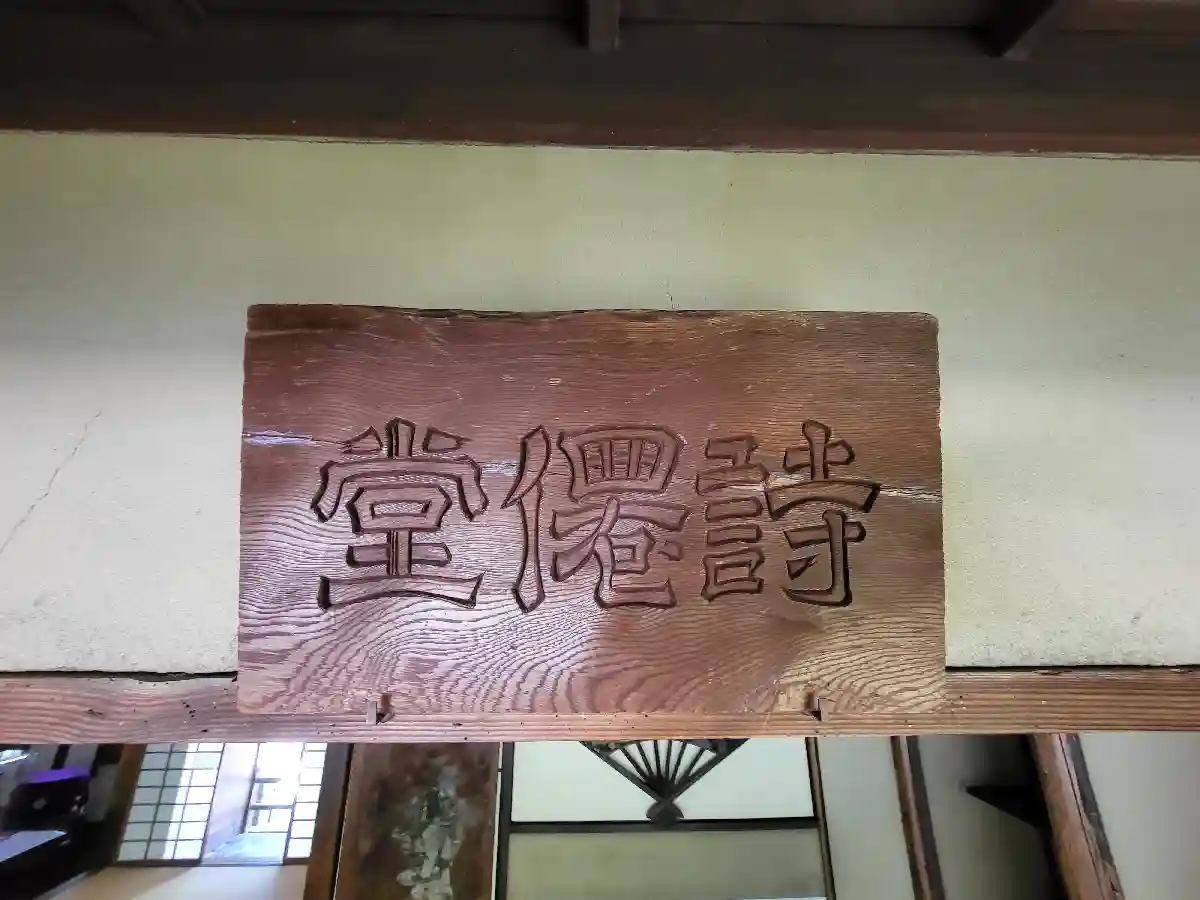 詩僊堂